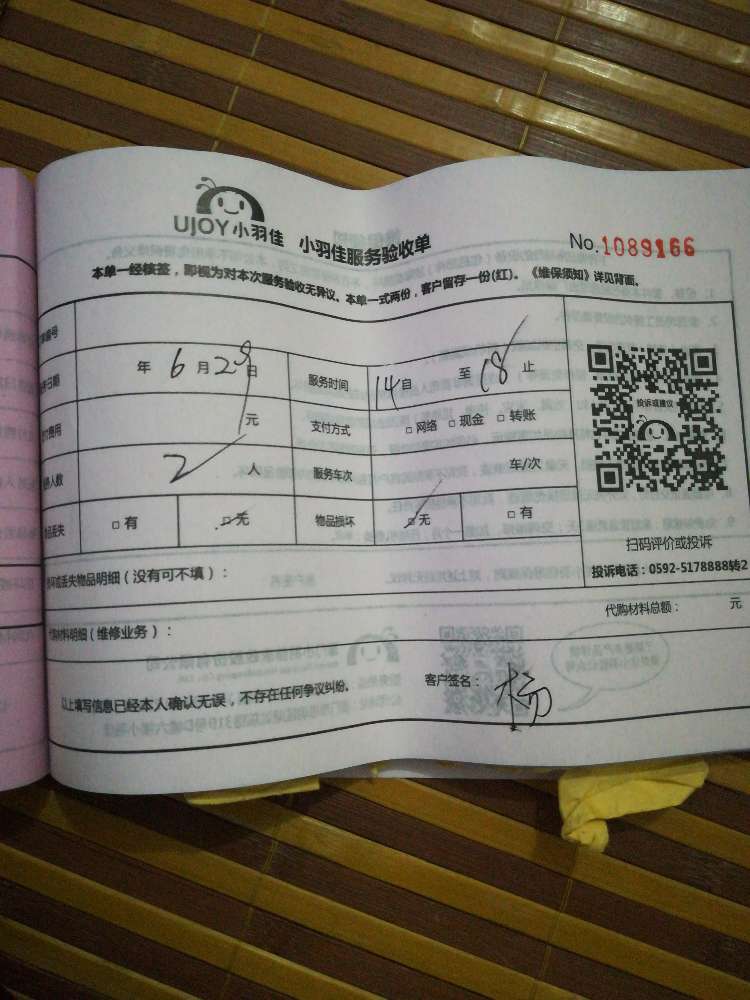 UJOY小羽佳 小羽佳服务验收单 No.1089166
本单一经核签，即视为对本次服务验收无异议。本单一式两份，客户留存一份(红)。《维保须知》详见背面。
编号
日期 年 6月28日 服务时间 14自 至18止
费用 元 支付方式 □网络 □现金 □转账
人数 2 人 服务车次 车/次
物品丢失 □有 □无 物品损坏 □无 □有
投诉或建议
扫码评价或投诉
投诉电话：0592-5178888转2
损坏或丢失物品明细（没有可不填）：
代购材料明细（维修业务）： 代购材料总额： 元
以上填写信息已经本人确认无误，不存在任何争议纠纷。 客户签名：杨